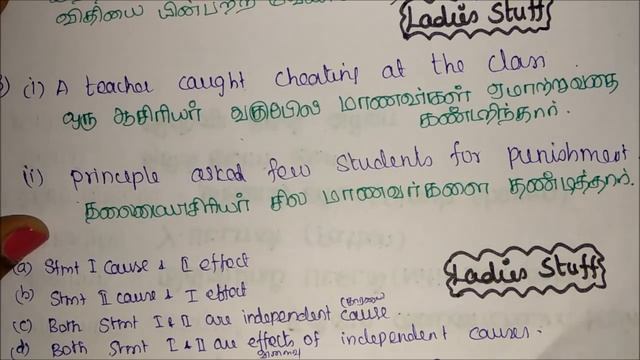 விதியை பின்பற்ற
Ladies Stuff
(i) A teacher caught cheating at the class
ஒரு ஆசிரியர் வகுப்பில் மாணவர்கள் ஏமாற்றுவதை
கண்டறிந்தார்.
(ii) principle asked few students for punishment.
தலைமையாசிரியர் சில மாணவர்களை தண்டித்தார்.
(a) Stmt I cause & II effect
Ladies Stuff
(b) Stmt II cause & I effect
(காரணம்)
(c) Both Stmt I & II are independent cause
(d) Both Stmt I & II are effects of independent causes.
விளைவு